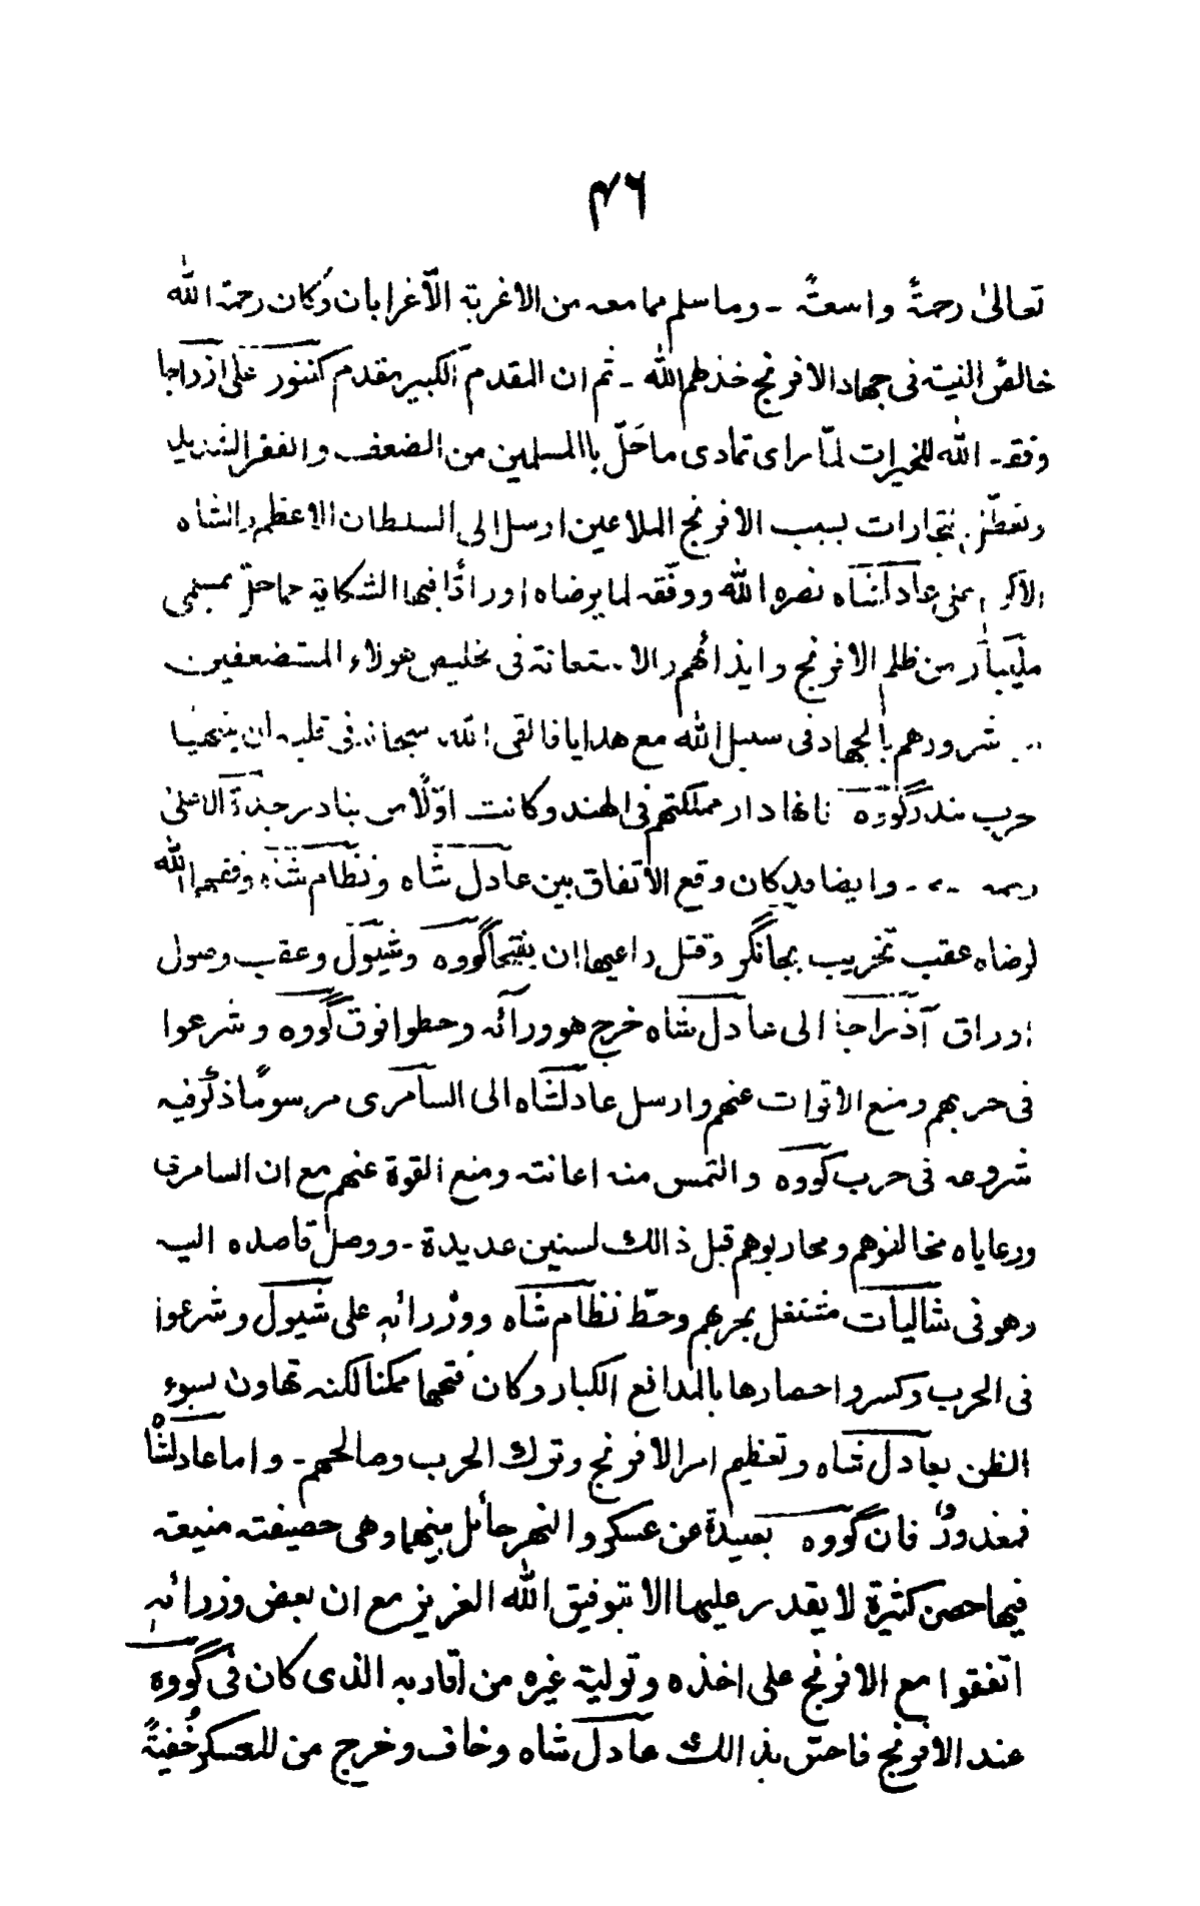 ۴۶
تعالىٰ رحمةً واسعتًه ـ وما سلم مما معه من الاغربة الّا غرابان وكان رحمة الله
خالص النية فى جهاد الافرنج خذلهم الله ـ ثم ان المقدم الكبير مقدم كننور على ازراجا
وفقه الله للخيرات لمّا راى تمادى ما حَلّ باالمسلمين من الضعف والفقر الشديد
وتعطّل تجارات بسبب الافرنج الملاعين ارسل الى السلطان الاعظم والشاه
الاكرم عادلشاه نصره الله ووفقه لما يرضاه اوراقًا فيها الشكاية مما حلّ بمسلمى
مليبار من ظلم الافرنج وايذائهم والاستعانة فى تخليص هولاء المستضعفين
شرورهم بالجهاد فى سبيل الله مع هدايا فالقى الله سبحانه فى قلبه ان
حرب بندر گووه فانها دار مملكتهم فى الهند وكانت اوّلًا من بنادر جده الاعلىٰ
وايضا كان وقع الاتفاق بين عادل شاه ونظام شاه وفقهما الله
لرضاه عقب تخريب بجانگر وقتل داعيها ان يفتحا گووه وشيول وعقب وصول
اوراق آذراجا الى عادل شاه خرج هو ورائه وحطوا فوق گووه وشرعوا
فى حربهم ومنع الاقوات عنهم وارسل عادلشاه الى السامرى مرسومًا ذكر فيه
شروعه فى حرب گووه والتمس منه اعانته ومنع القوة عنهم مع ان السامرى
ورعاياه مخالفوهم ومحاربوهم قبل ذالك لسنين عديدة ـ ووصل قاصده اليه
وهو فى شاليات مشتغل بحربهم وحطّ نظام شاه ووزرائه على شيول وشرعوا
فى الحرب وكسروا حصارها بالمدافع الكبار وكان فتحها ممكنا لكنه تهاون بسوء
الظن بعادل شاه وتعظيم امر الافرنج وترك الحرب وصالحهم ـ واما عادلشاه
فمغدورٌ فان گووه بعيدة عن عسكره والنهر حائل بينهما وهى حصيفته منيعته
فيها حصن كثيرة لا يقدر عليها الا بتوفيق الله العزيز مع ان بعض وزرائه
اتفقوا مع الافرنج على اخذه وتولية غيره من اقاربه الذى كان فى گووه
عند الافرنج فاحسّ بذالك عادل شاه وخاف وخرج من للعسكر خُفيةً